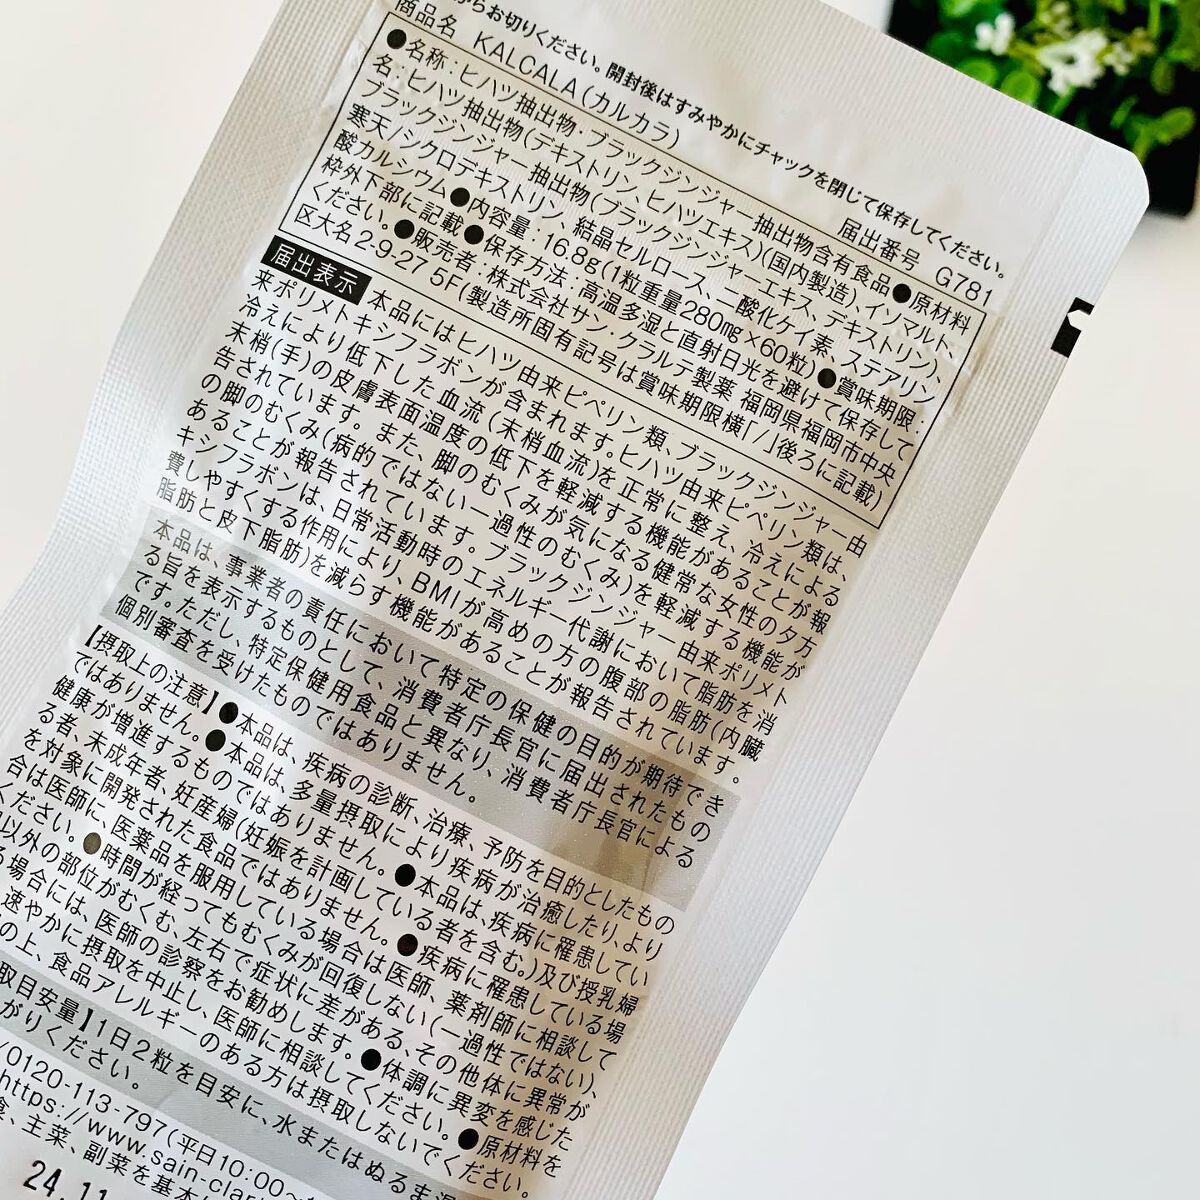 からお切りください。開封後はすみやかにチャックを閉じて保存してください。
商品名 KALCALA(カルカラ) 届出番号 G781
●名称:ヒハツ抽出物・ブラックジンジャー抽出物含有食品●原材料
名:ヒハツ抽出物(デキストリン、ヒハツエキス)(国内製造)、イソマルト、
ブラックジンジャー抽出物(ブラックジンジャーエキス、デキストリン)、
寒天/シクロデキストリン、結晶セルロース、二酸化ケイ素、ステアリン
酸カルシウム●内容量:16.8g(1粒重量280mg×60粒)●賞味期限:
枠外下部に記載●保存方法:高温多湿と直射日光を避けて保存して
ください。●販売者:株式会社サン・クラルテ製薬 福岡県福岡市中央
区大名2-9-27 5F(製造所固有記号は賞味期限横「/」後ろに記載)
届出表示 本品にはヒハツ由来ピペリン類、ブラックジンジャー由
来ポリメトキシフラボンが含まれます。ヒハツ由来ピペリン類は、
冷えにより低下した血流(末梢血流)を正常に整え、冷えによる
末梢(手)の皮膚表面温度の低下を軽減する機能があることが報
告されています。また、脚のむくみが気になる健常な女性の夕方
の脚のむくみ(病的ではない一過性のむくみ)を軽減する機能が
あることが報告されています。ブラックジンジャー由来ポリメト
キシフラボンは、日常活動時のエネルギー代謝において脂肪を消
費しやすくする作用により、BMIが高めの方の腹部の脂肪(内臓
脂肪と皮下脂肪)を減らす機能があることが報告されています。
本品は、事業者の責任において特定の保健の目的が期待でき
る旨を表示するものとして、消費者庁長官に届出されたもの
です。ただし、特定保健用食品と異なり、消費者庁長官による
個別審査を受けたものではありません。
【摂取上の注意】●本品は、疾病の診断、治療、予防を目的としたもの
ではありません。●本品は、多量摂取により疾病が治癒したり、より
健康が増進するものではありません。●本品は、疾病に罹患してい
る者、未成年者、妊産婦(妊娠を計画している者を含む。)及び授乳婦
を対象に開発された食品ではありません。●疾病に罹患している場
合は医師に、医薬品を服用している場合は医師、薬剤師に相談して
ください。●時間が経ってもむくみが回復しない(一過性ではない)、
以外の部位がむくむ、左右で症状に差がある、その他体に異常が
る場合には、医師の診察をお勧めします。●体調に異変を感じた
速やかに摂取を中止し、医師に相談してください。●原材料を
の上、食品アレルギーのある方は摂取しないでください。
取目安量】1日2粒を目安に、水またはぬるま
がりください。
/0120-113-797(平日10:00～
https://www.sain-clar
食、主菜、副菜を基本
24.11